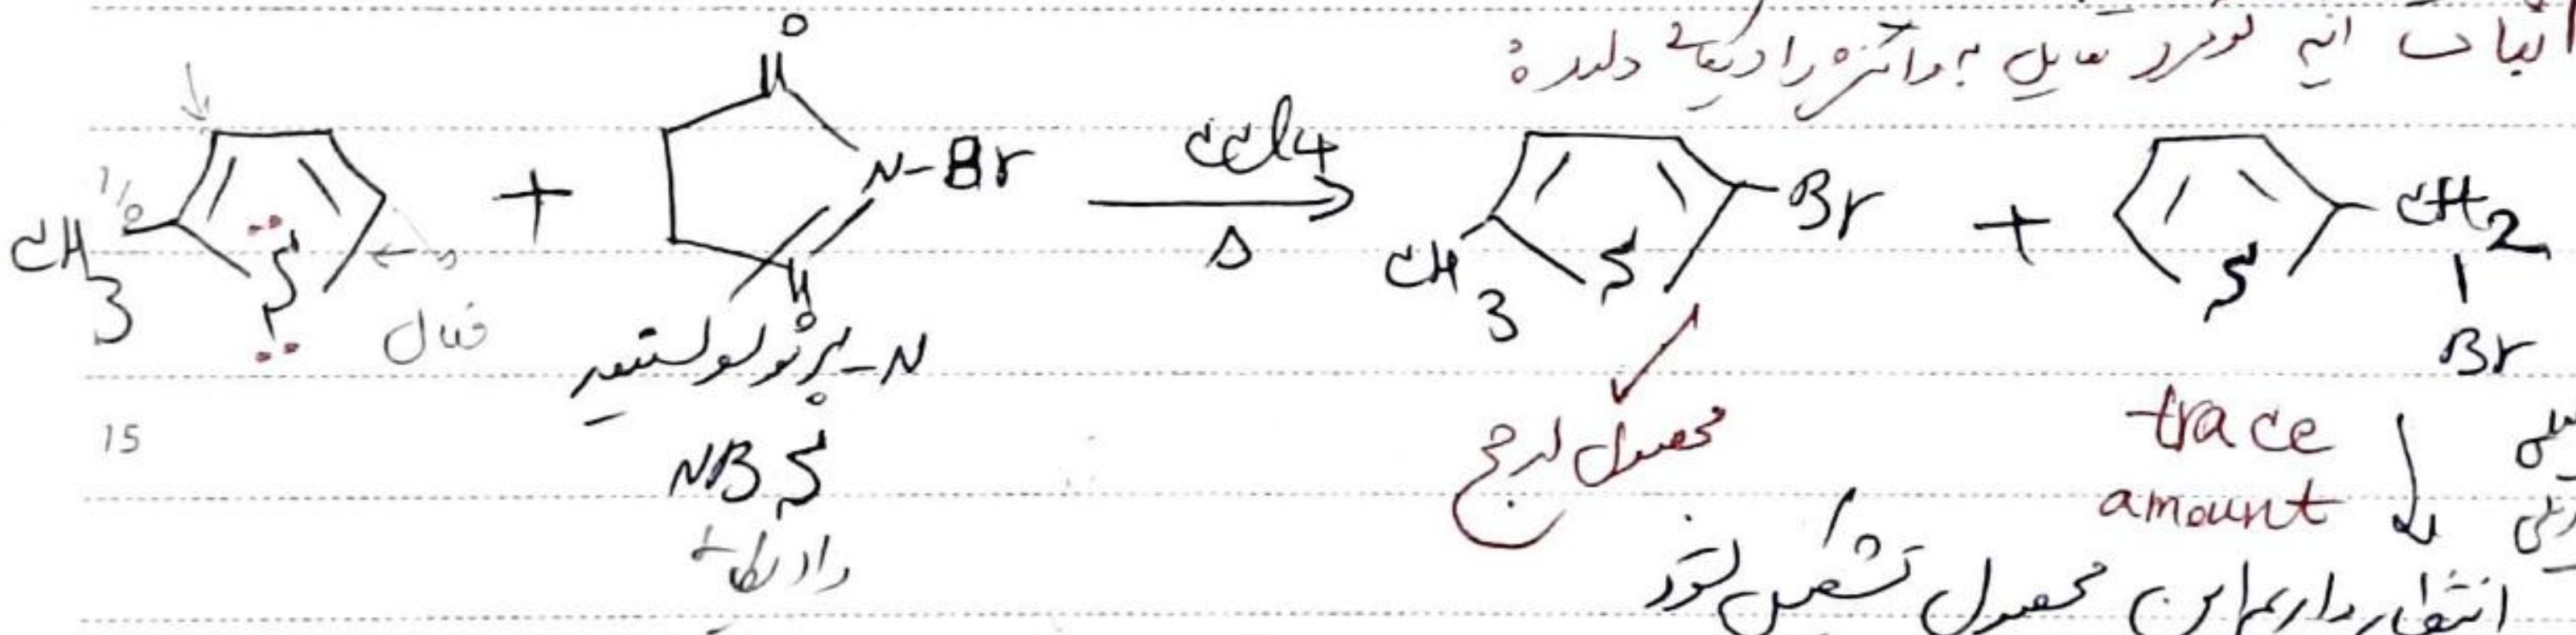 اثبات اینکه گوگرد تمایل به واکنش رادیکالی دارد:
O
CH3 S + N-Br CCl4 Δ CH3 S Br + S CH2
O
Br
فعال
N-برموسوکسینیمید
NBS
رادیکالی
محصول ارجح
trace
amount
15
انتظار داریم این محصول تشکیل شود